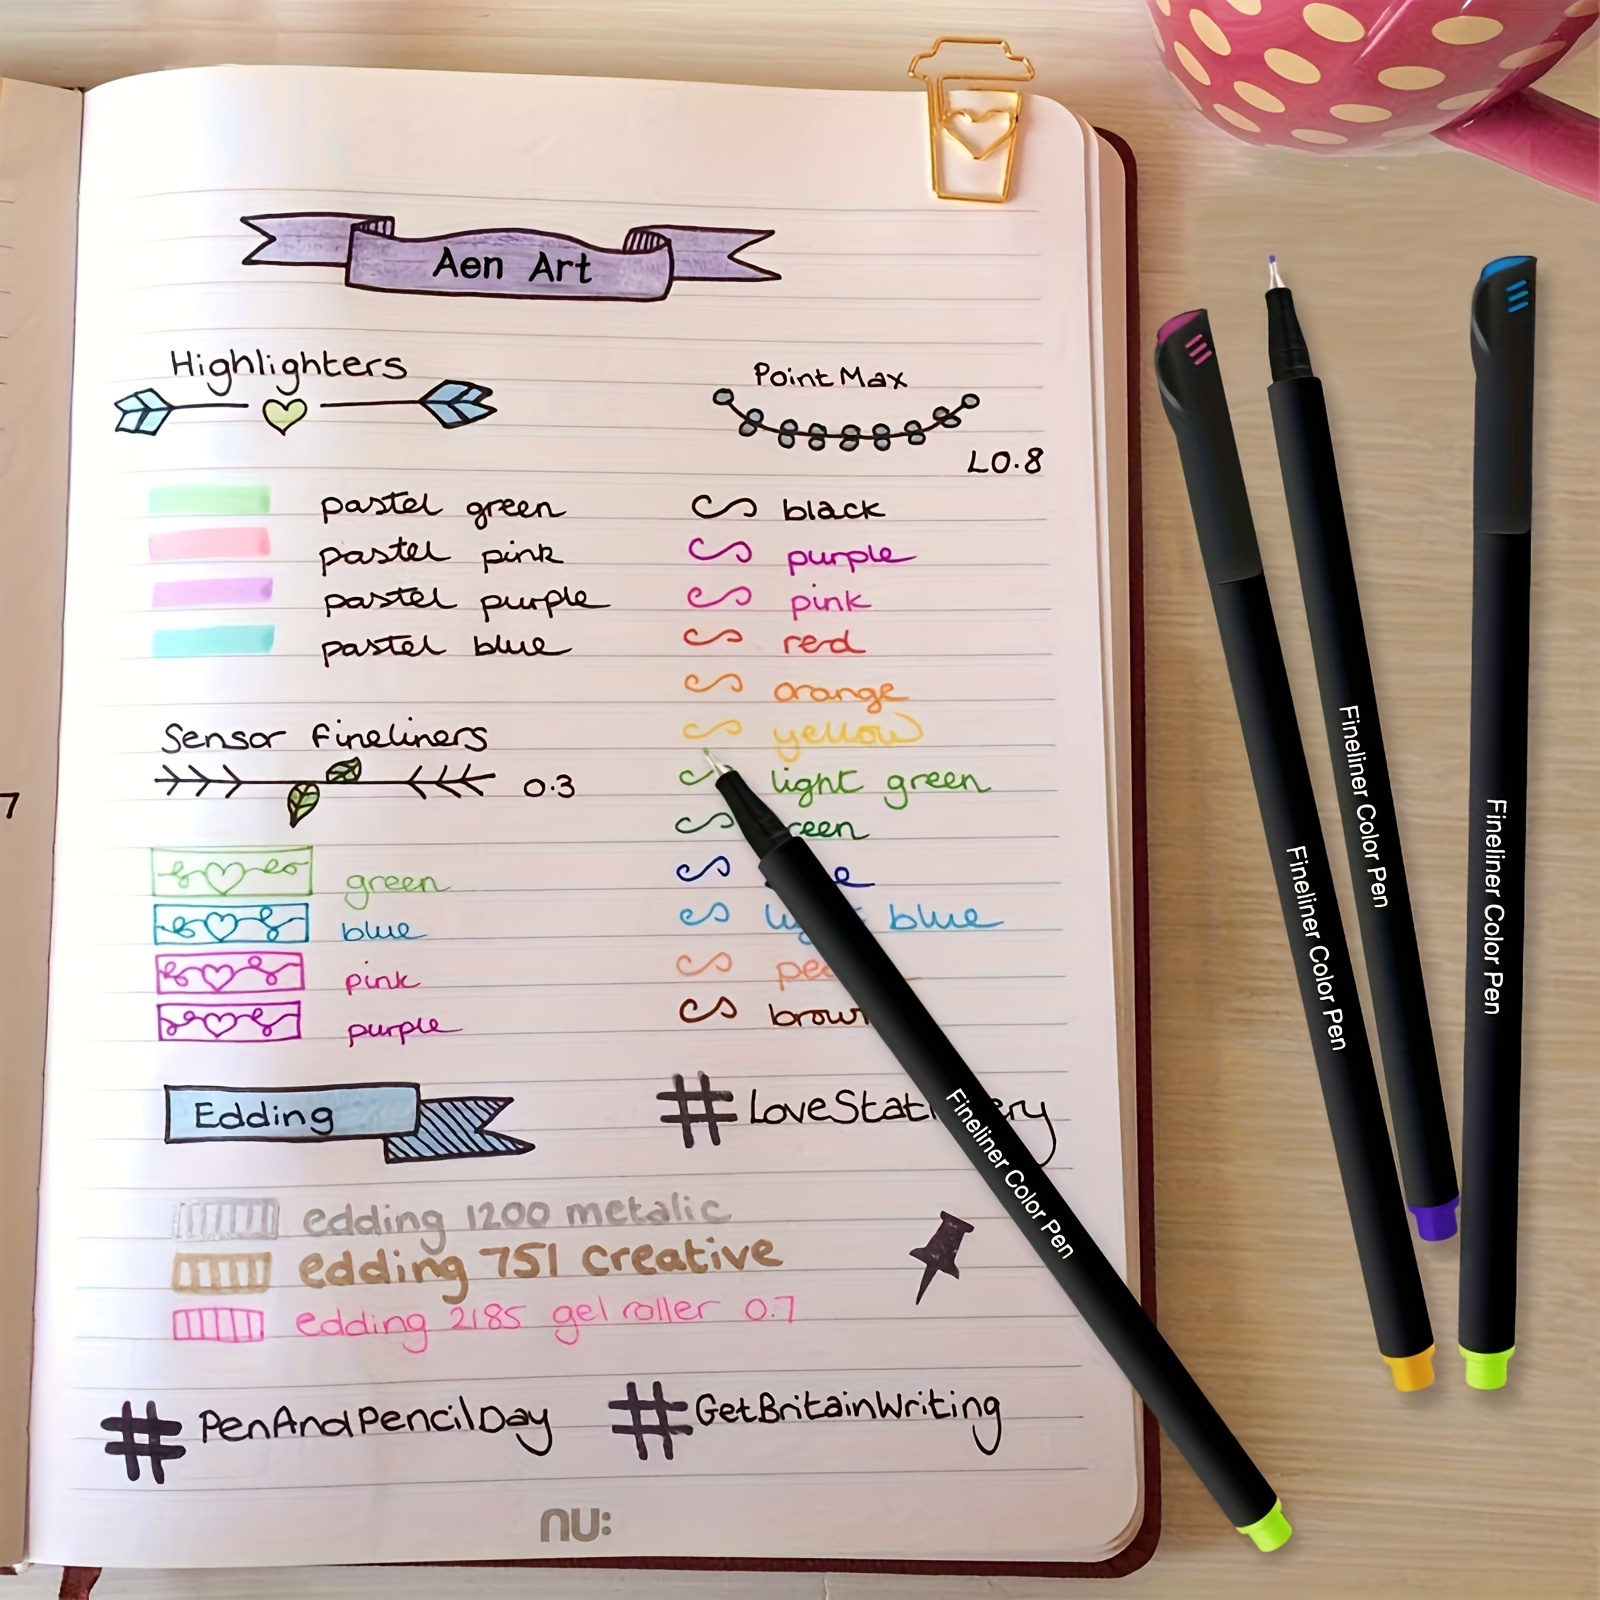 Aen Art
Highlighters
pastel green
pastel pink
pastel purple
pastel blue
Sensor fineliners
0.3
green
blue
pink
purple
Point Max
L0.8
black
purple
pink
red
orange
yellow
light green
blue
brown
Edding
#LoveStationery
edding 1200 metalic
edding 751 creative
edding 2185 gel roller 0.7
#PenAndPencilDay
#GetBritainWriting
nu:
7
Fineliner Color Pen
Fineliner Color Pen
Fineliner Color Pen
Fineliner Color Pen